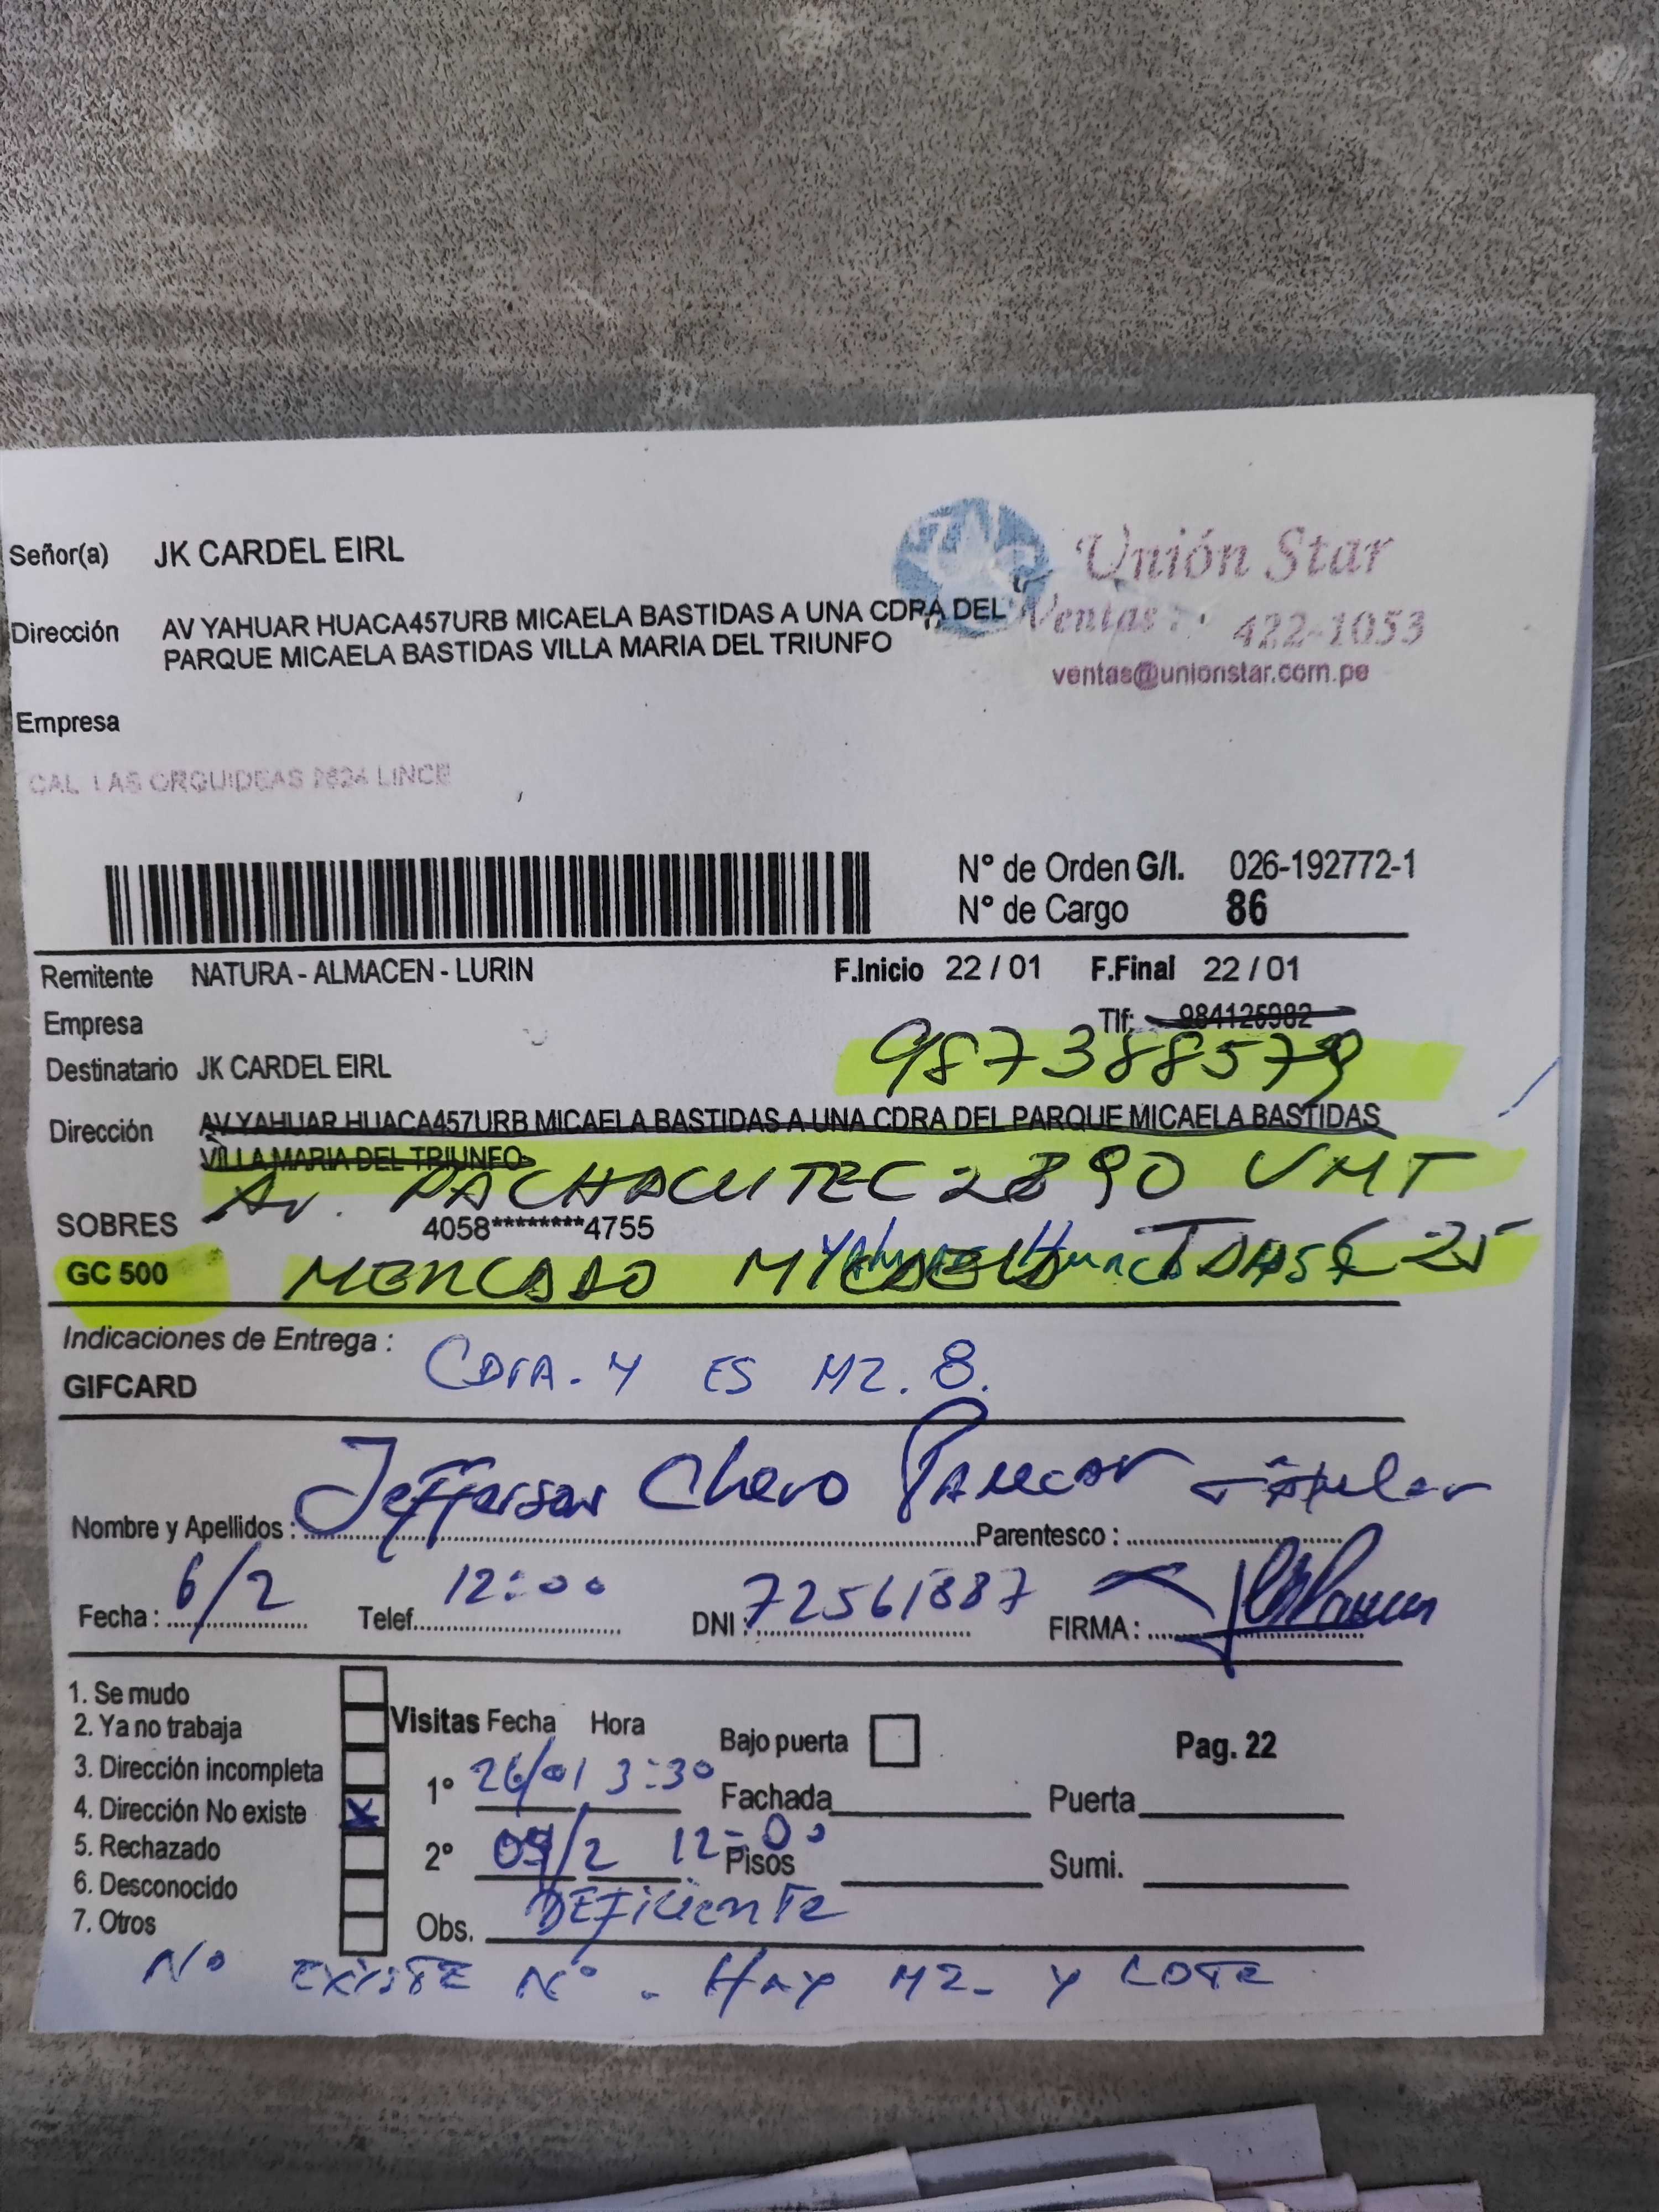 Señor(a) JK CARDEL EIRL
Unión Star
Dirección AV YAHUAR HUACA457URB MICAELA BASTIDAS A UNA CDRA DEL
PARQUE MICAELA BASTIDAS VILLA MARIA DEL TRIUNFO
Ventas: 422-1053
ventas@unionstar.com.pe
Empresa
CAL LAS ORQUIDEAS 2624 LINCE
N° de Orden G/I. 026-192772-1
N° de Cargo 86
Remitente NATURA - ALMACEN - LURIN F.Inicio 22 / 01 F.Final 22 / 01
Empresa Tlf: 984125982
987388579
Destinatario JK CARDEL EIRL
Dirección AV YAHUAR HUACA457URB MICAELA BASTIDAS A UNA CDRA DEL PARQUE MICAELA BASTIDAS
VILLA MARIA DEL TRIUNFO
Av. PACHACUTEC 2890 VMT
SOBRES 4058********4755
GC 500 MERCADO
Indicaciones de Entrega :
GIFCARD
CDrA. 4 ES MZ. 8.
Nombre y Apellidos : Jefferson Parecentesco :
Fecha : 6/2 Telef. 12:00 DNI : 72561887 FIRMA :
1. Se mudo
2. Ya no trabaja
3. Dirección incompleta
4. Dirección No existe X
5. Rechazado
6. Desconocido
7. Otros
Visitas Fecha Hora
1° 26/01 3:30
2° 05/2 12-00
Obs. DEFiciente
Bajo puerta Pag. 22
Fachada Puerta
Pisos Sumi.
No EXISTE N°. HAY MZ. Y LOTE